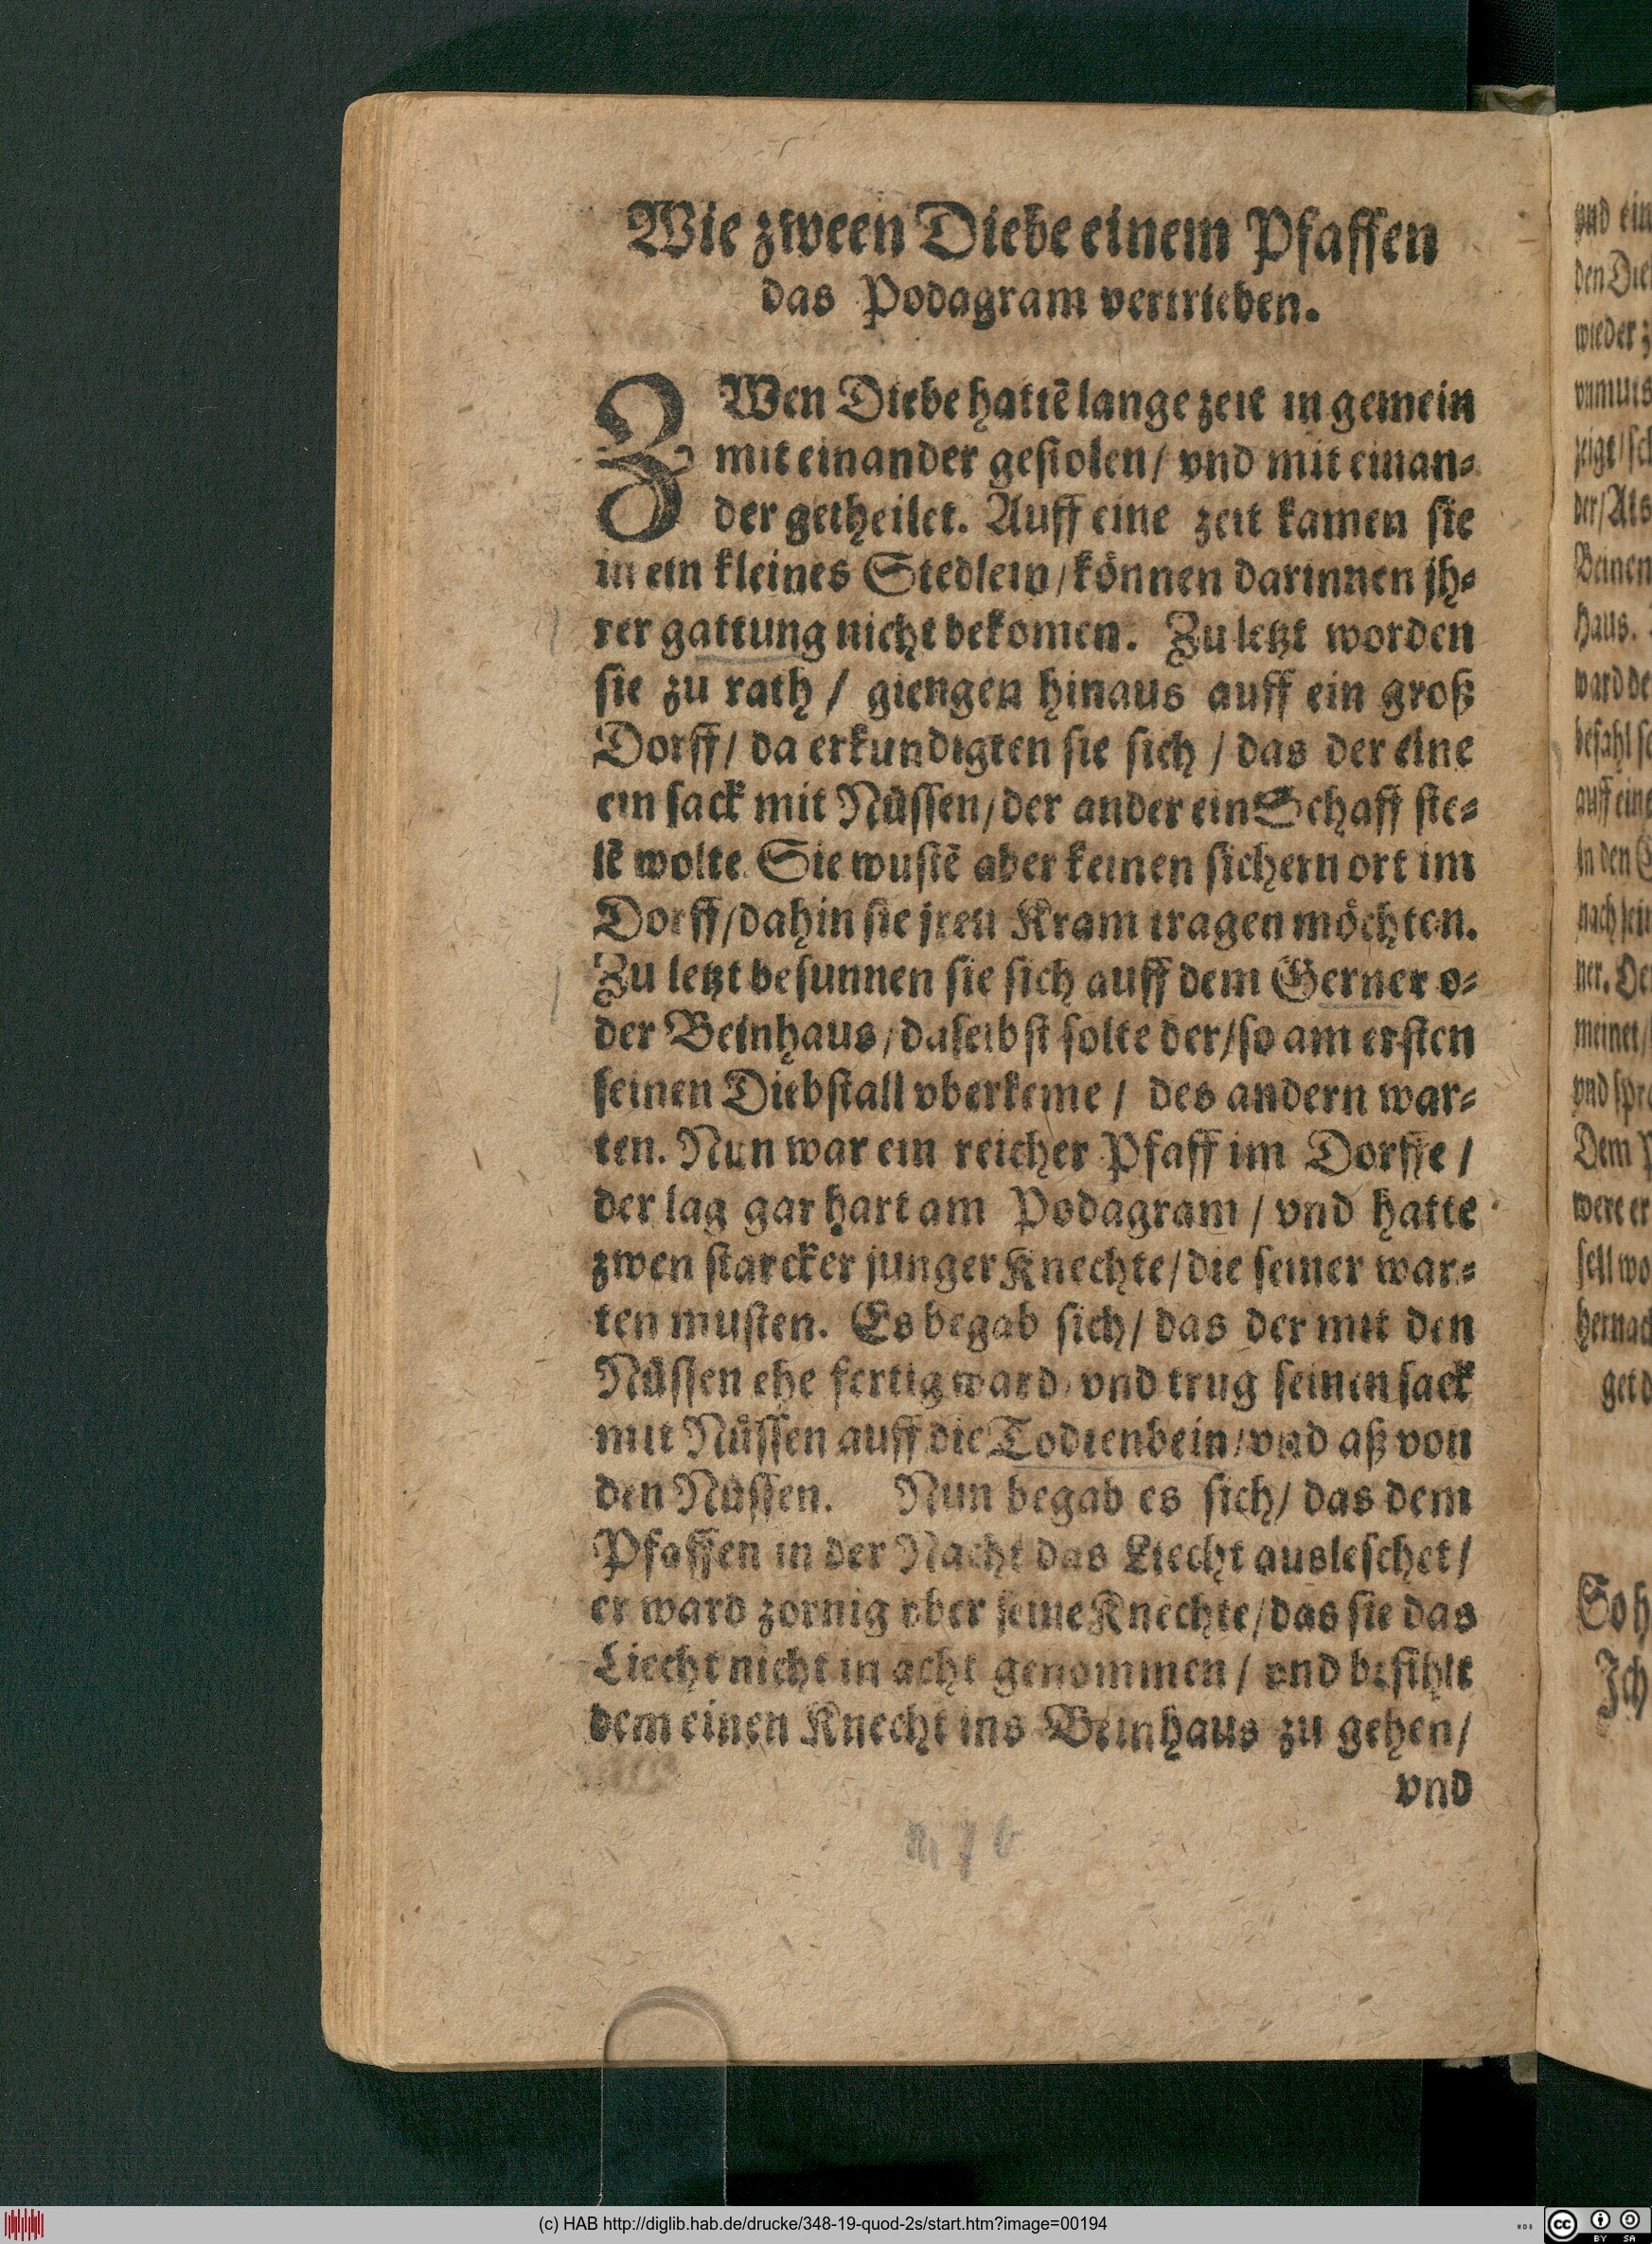 Wie zween Diebe einem Pfaffen
das Podagram vertrieben.
ZWen Diebe hattẽ lange zeit in gemein
mit einander gestolen / vnd mit einan⸗
der getheilet. Auff eine zeit kamen sie
in ein kleines Stedlein / können darinnen jh⸗
rer gattung nicht bekomen. Zu letzt worden
sie zu rath / giengen hinaus auff ein groß
Dorff / da erkundigten sie sich / das der eine
ein sack mit Nüssen / der ander ein Schaff ste⸗
lẽ wolte. Sie wustẽ aber keinen sichern ort im
Dorff / dahin sie jren Kram tragen möchten.
Zu letzt besunnen sie sich auff dem Gerner o⸗
der Beinhaus / daselbst solte der / so am ersten
seinen Diebstall vberkeme / des andern war⸗
ten. Nun war ein reicher Pfaff im Dorffe /
der lag gar hart am Podagram / vnd hatte
zwen starcker junger Knechte / die seiner war⸗
ten musten. Es begab sich / das der mit den
Nüssen ehe fertig ward / vnd trug seinen sack
mit Nüssen auff die Todtenbein / vnd aß von
den Nüssen. Nun begab es sich / das dem
Pfaffen in der Nacht das Liecht ausleschet /
er ward zornig vber seine Knechte / das sie das
Liecht nicht in acht genommen / vnd befihlt
dem einen Knecht ins Beinhaus zu gehen /
vnd
vnd ein
den Die
wieder z
vnmuts
zeigt / sch
der / Als
Beinen
Haus.
ward de
befahl se
auff eine
in den G
nach sein
ner. De
meinet /
vnd spra
Dem P
were er
sell wo
hernach
get d
So h
Ich
(c) HAB http://diglib.hab.de/drucke/348-19-quod-2s/start.htm?image=00194
cc BY SA